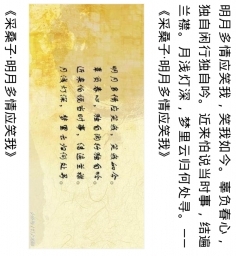 明月多情应笑我，笑我如今。辜负春心，
独自闲行独自吟。近来怕说当时事，结遍
兰襟。月浅灯深，梦里云归何处寻。——
《采桑子·明月多情应笑我》
明月多情应笑我，笑我如今。
辜负春心，独自闲行独自吟。
近来怕说当时事，结遍兰襟。
月浅灯深，梦里云归何处寻。
《采桑子·明月多情应笑我》